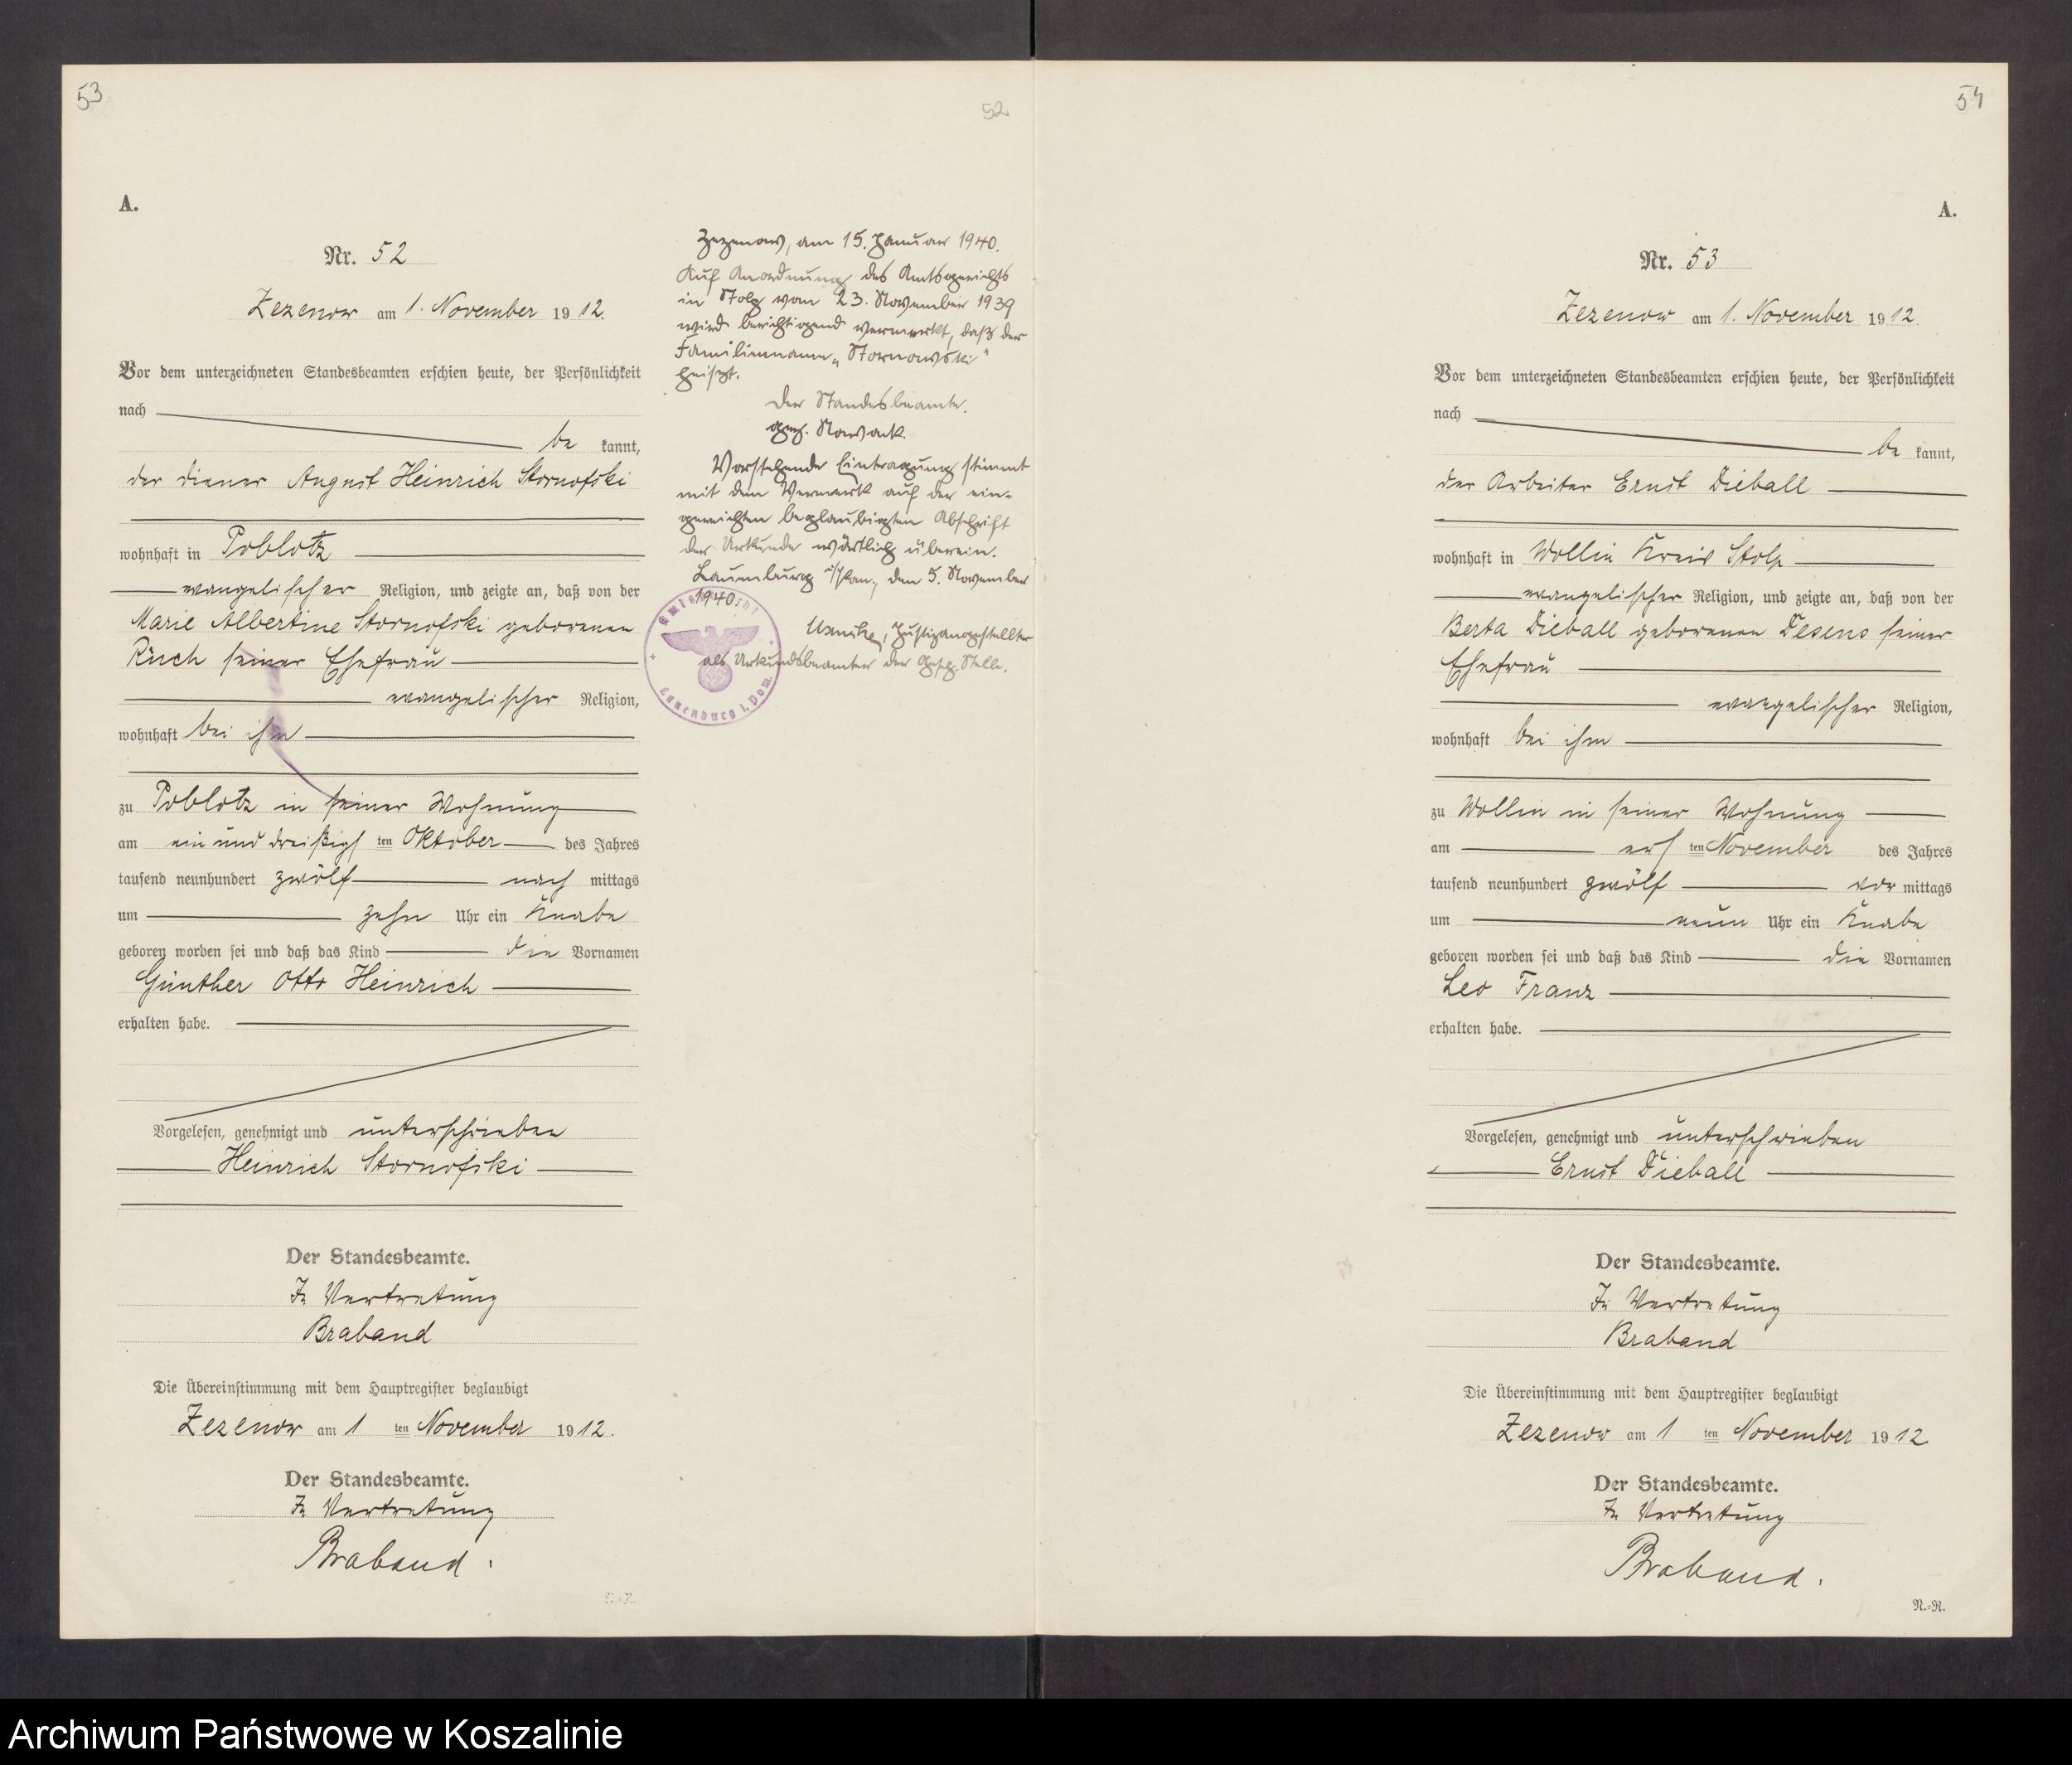 53
A.
Nr. 52
Zezenow am 1. November 1912.
Vor dem unterzeichneten Standesbeamten erschien heute, der Persönlichkeit
nach
be kannt,
der Diener August Heinrich Stornofski
wohnhaft in Poblotz
evangelischer Religion, und zeigte an, daß von der
Marie Albertine Stornofski geborenen
Rüch seiner Ehefrau
evangelischer Religion,
wohnhaft bei ihm
zu Poblotz in seiner Wohnung
am ein und dreißigs ten Oktober des Jahres
tausend neunhundert zwölf nach mittags
um zehn Uhr ein Knabe
geboren worden sei und daß das Kind die Vornamen
Günther Otto Heinrich
erhalten habe.
Vorgelesen, genehmigt und unterschrieben
Heinrich Stornofski
Der Standesbeamte.
In Vertretung
Braband
Die Übereinstimmung mit dem Hauptregister beglaubigt
Zezenow am 1 ten November 1912.
Der Standesbeamte.
In Vertretung
Braband.
N.=R.
52
Zezenow, am 15. Januar 1940.
Auf Anordnung des Amtsgerichts
in Stolp vom 23. November 1939
wird berichtigend vermerkt, daß der
Familienname „Stornowski"
heißt.
Der Standesbeamte.
gez. Nowack.
Vorstehende Eintragung stimmt
mit dem Vermerk auf der ein-
gereichten beglaubigten Abschrift
der Urkunde wörtlich überein.
Lauenburg i/Pom., den 5. November
1940.
Justizangestellter
als Urkundsbeamter der Gesch. Stelle.
Amtsgericht
Lauenburg i. Pom.
54
A.
Nr. 53
Zezenow am 1. November 1912.
Vor dem unterzeichneten Standesbeamten erschien heute, der Persönlichkeit
nach
be kannt,
der Arbeiter Ernst Dieball
wohnhaft in Wollin Kreis Stolp
evangelischer Religion, und zeigte an, daß von der
Berta Dieball geborenen Desens seiner
Ehefrau
evangelischer Religion,
wohnhaft bei ihm
zu Wollin in seiner Wohnung
am ers ten November des Jahres
tausend neunhundert zwölf vor mittags
um neun Uhr ein Knabe
geboren worden sei und daß das Kind die Vornamen
Leo Franz
erhalten habe.
Vorgelesen, genehmigt und unterschrieben
Ernst Dieball
Der Standesbeamte.
In Vertretung
Braband
Die Übereinstimmung mit dem Hauptregister beglaubigt
Zezenow am 1 ten November 1912
Der Standesbeamte.
In Vertretung
Braband.
N.=R.
Archiwum Państwowe w Koszalinie